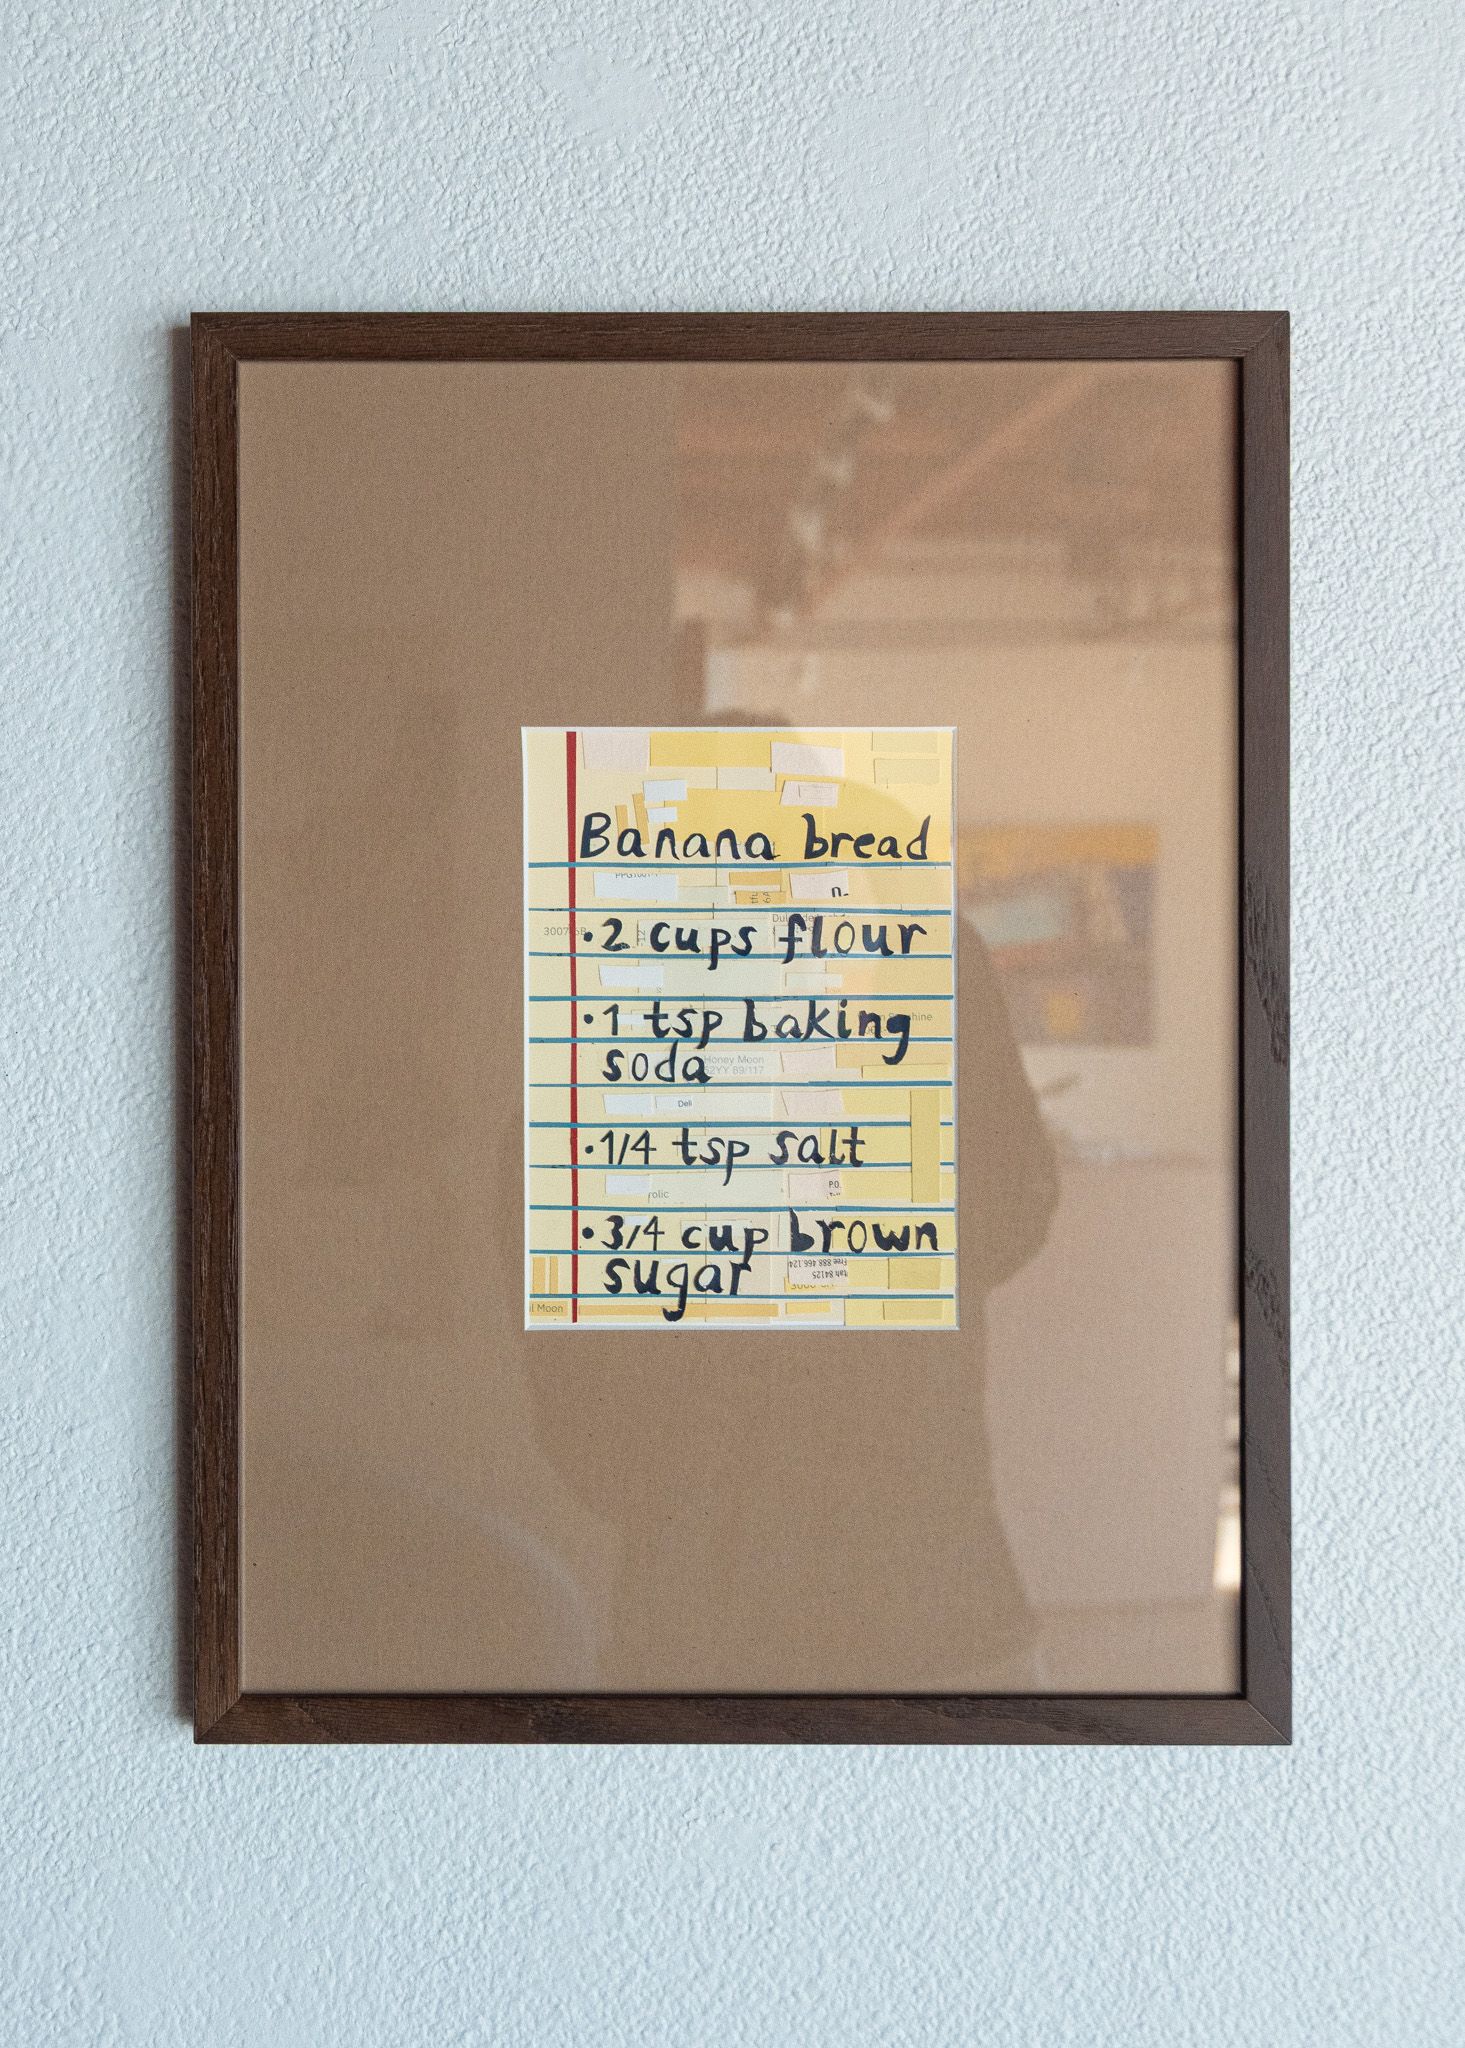 Banana bread
PPG1001-1
n.
3007-6B
·2 cups flour
·1 tsp baking
soda
Honey Moon
52YY 89/117
Deli
·1/4 tsp salt
rolic
P.O.
·3/4 cup brown
sugar
Free 888 466 124
tah 84125
l Moon